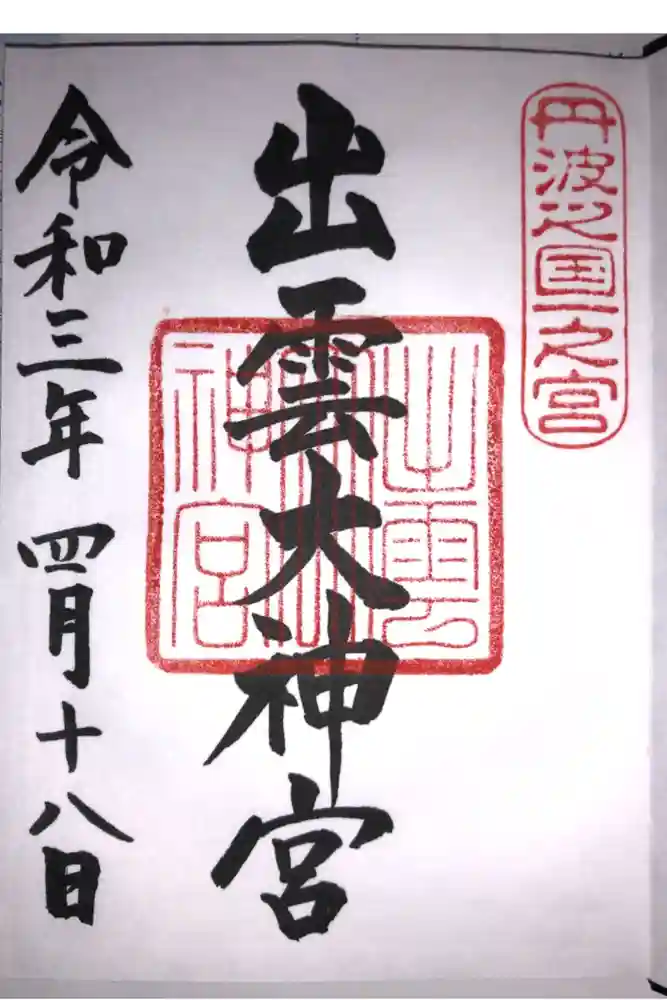 丹波之国一之宮
出雲大神宮
出雲大神宮
令和三年四月十八日